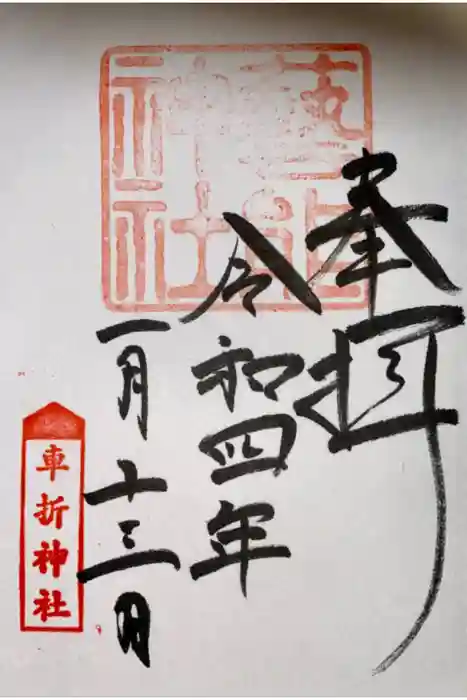 藝能
神社
奉拝
令和四年
一月十三日
車折神社